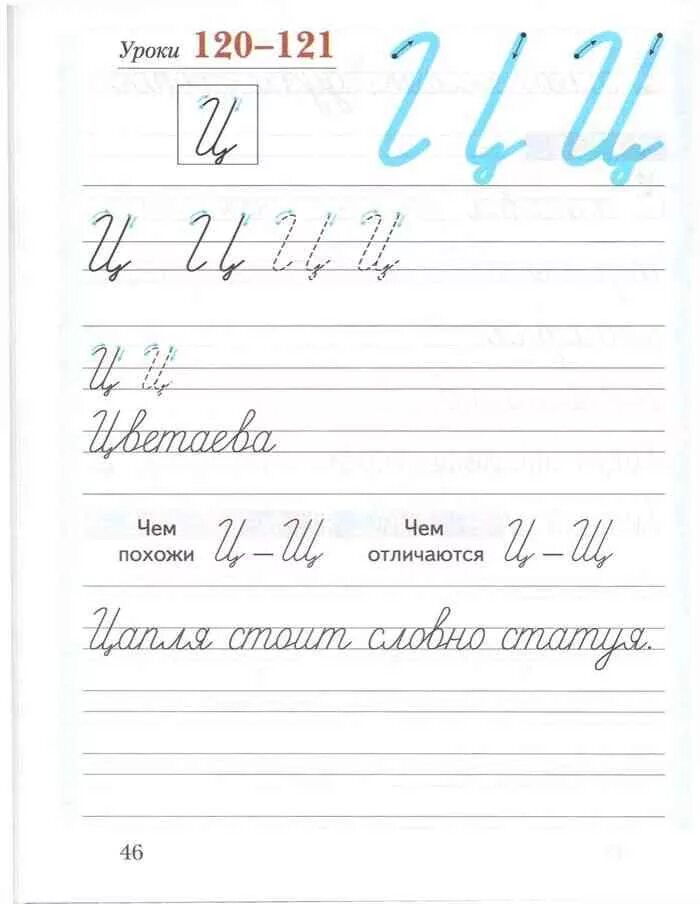 Уроки 120–121
Ц Ц
Ц
Ц Ц Ц Ц
Ц Ц
Цветаева
Чем похожи Ц – Щ Чем отличаются Ц – Щ
Цапля стоит словно статуя.
46